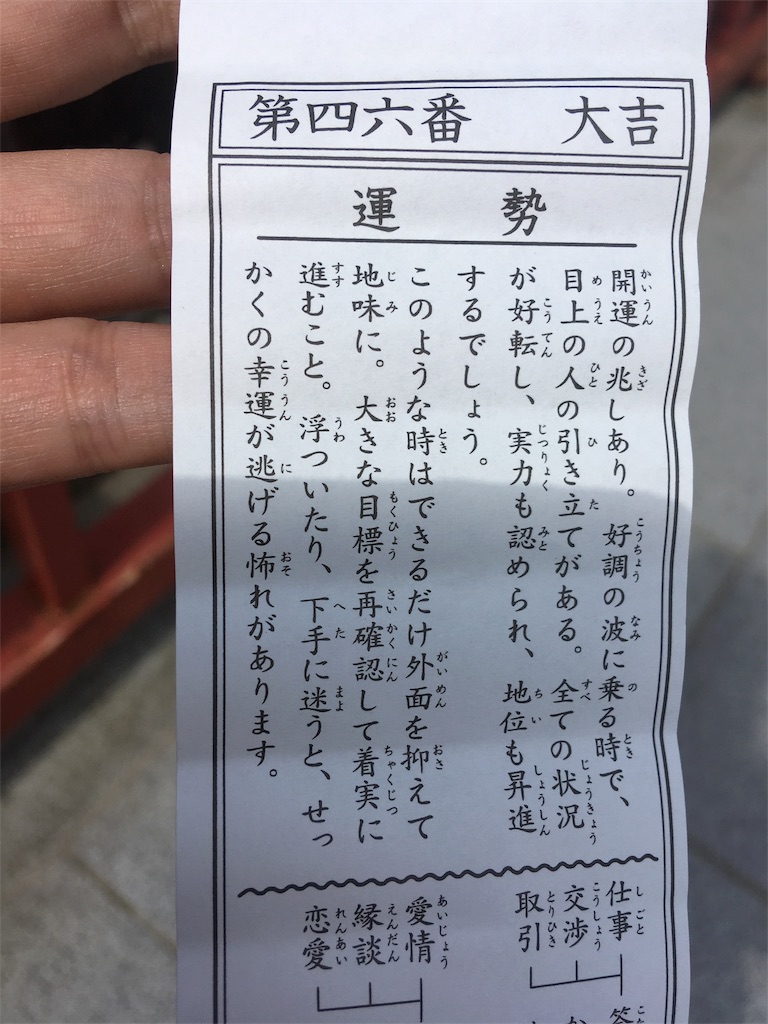 第四六番 大吉
運勢
開運の兆しあり。好調の波に乗る時で、
目上の人の引き立てがある。全ての状況
が好転し、実力も認められ、地位も昇進
するでしょう。
このような時はできるだけ外面を抑えて
地味に。大きな目標を再確認して着実に
進むこと。浮ついたり、下手に迷うと、せっ
かくの幸運が逃げる怖れがあります。
仕事
交渉
取引
愛情
縁談
恋愛